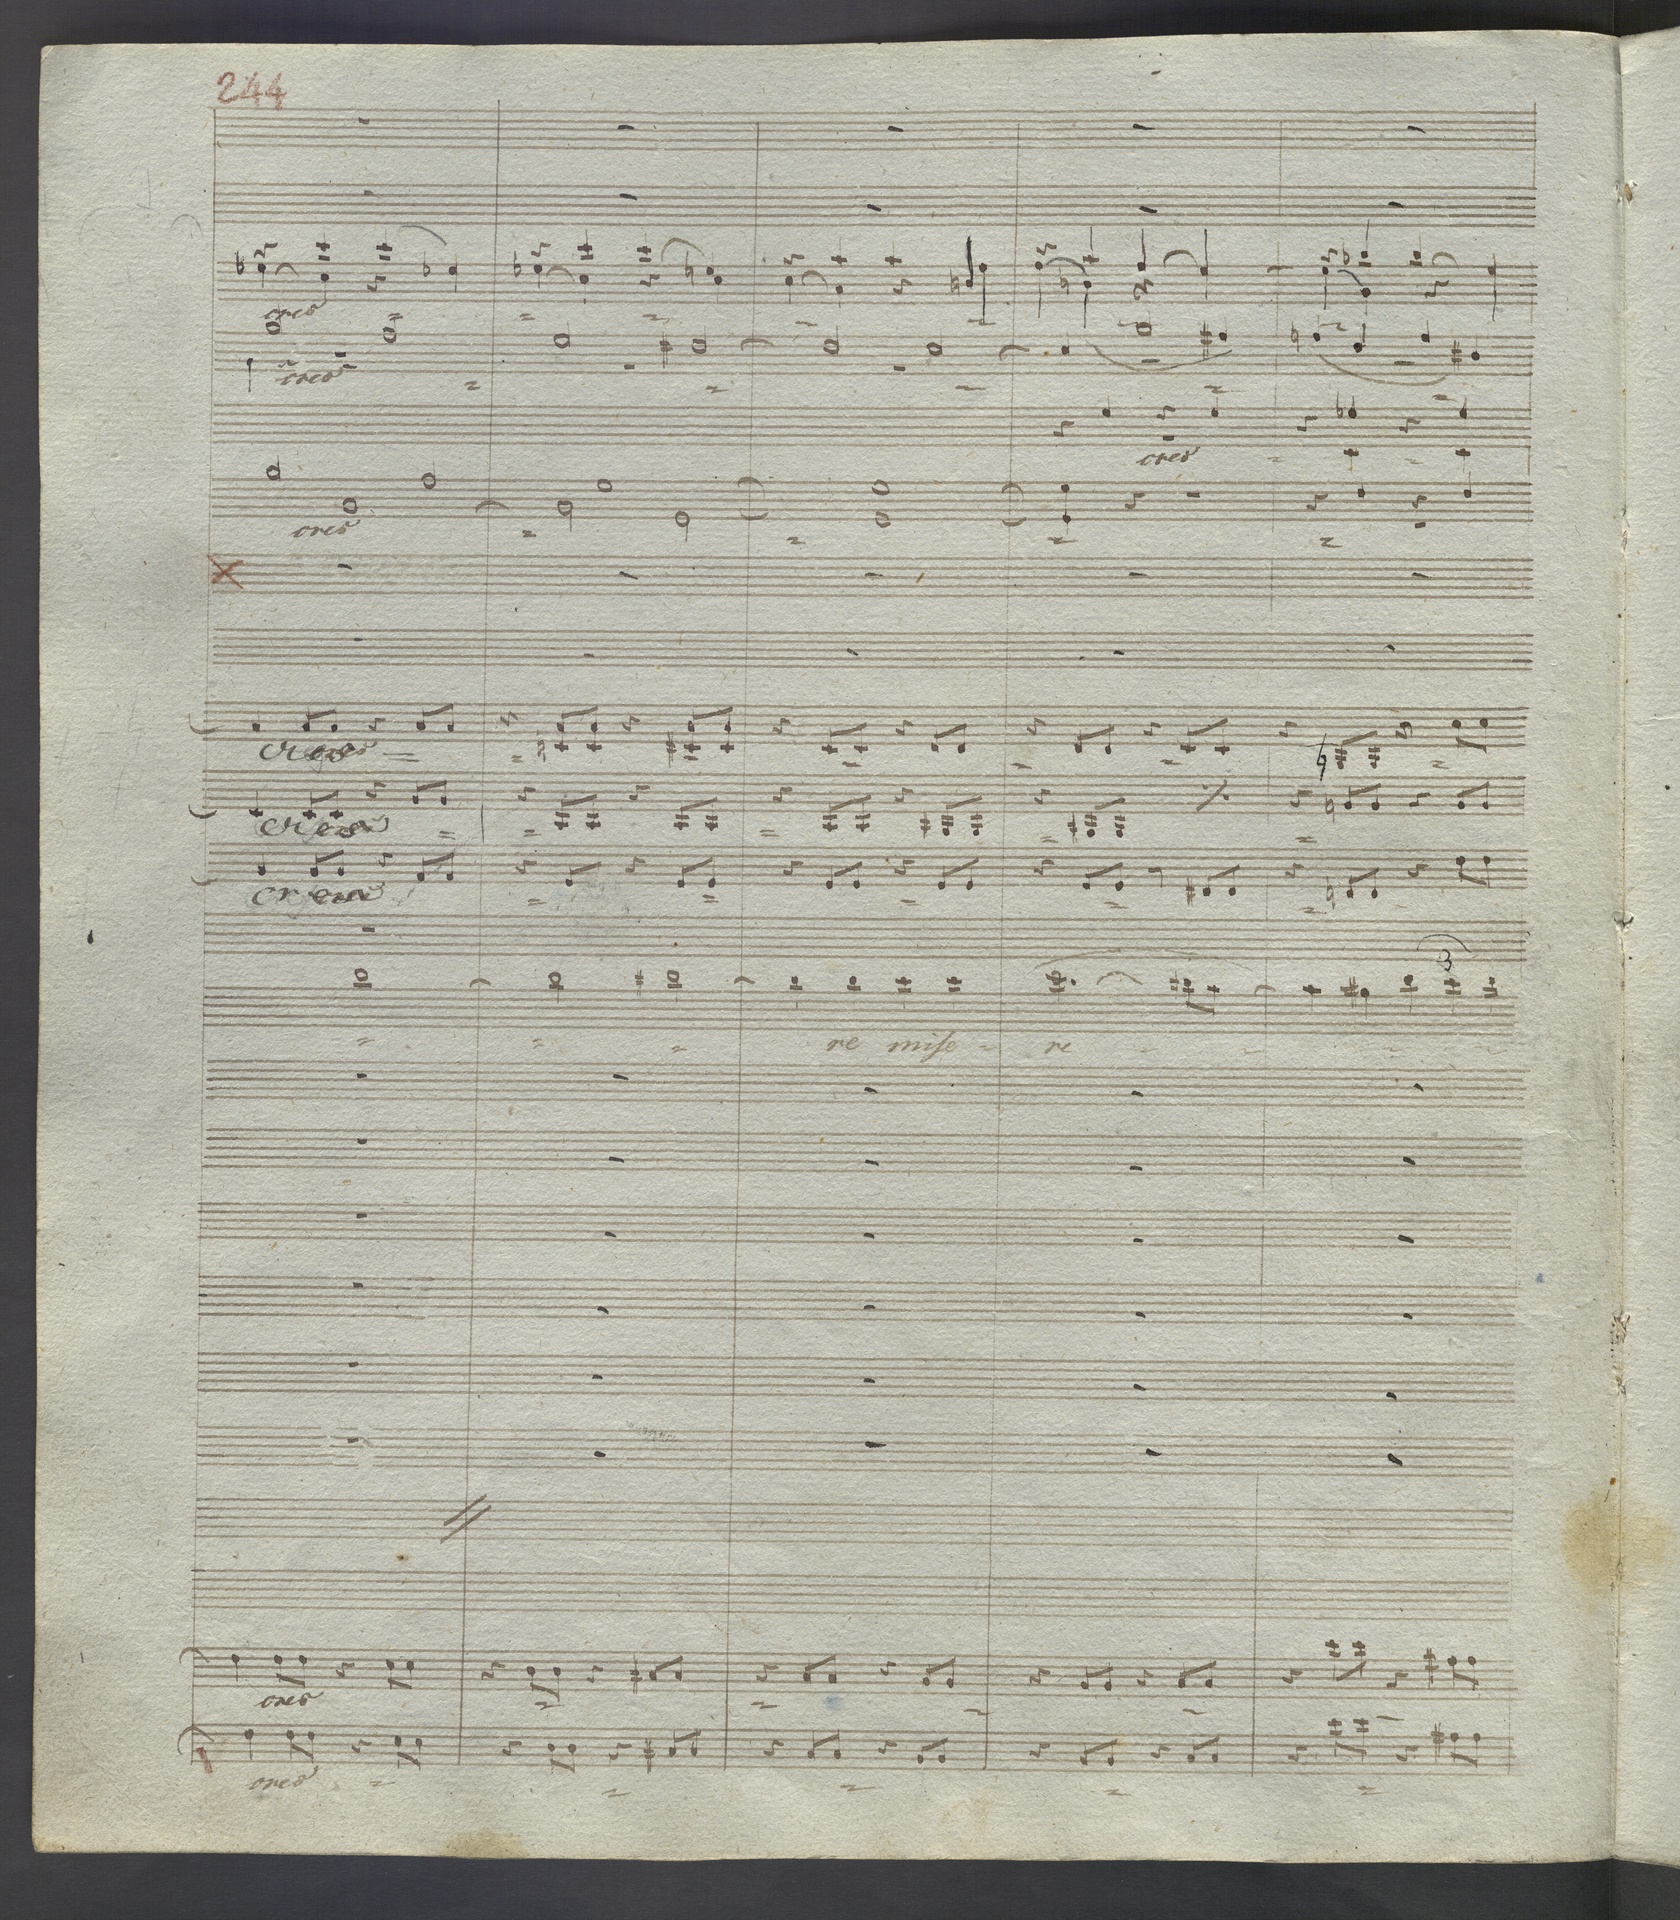 244
cres
cres
cres
cres
cres
cres
cres
3
re mise - re
cres
cres